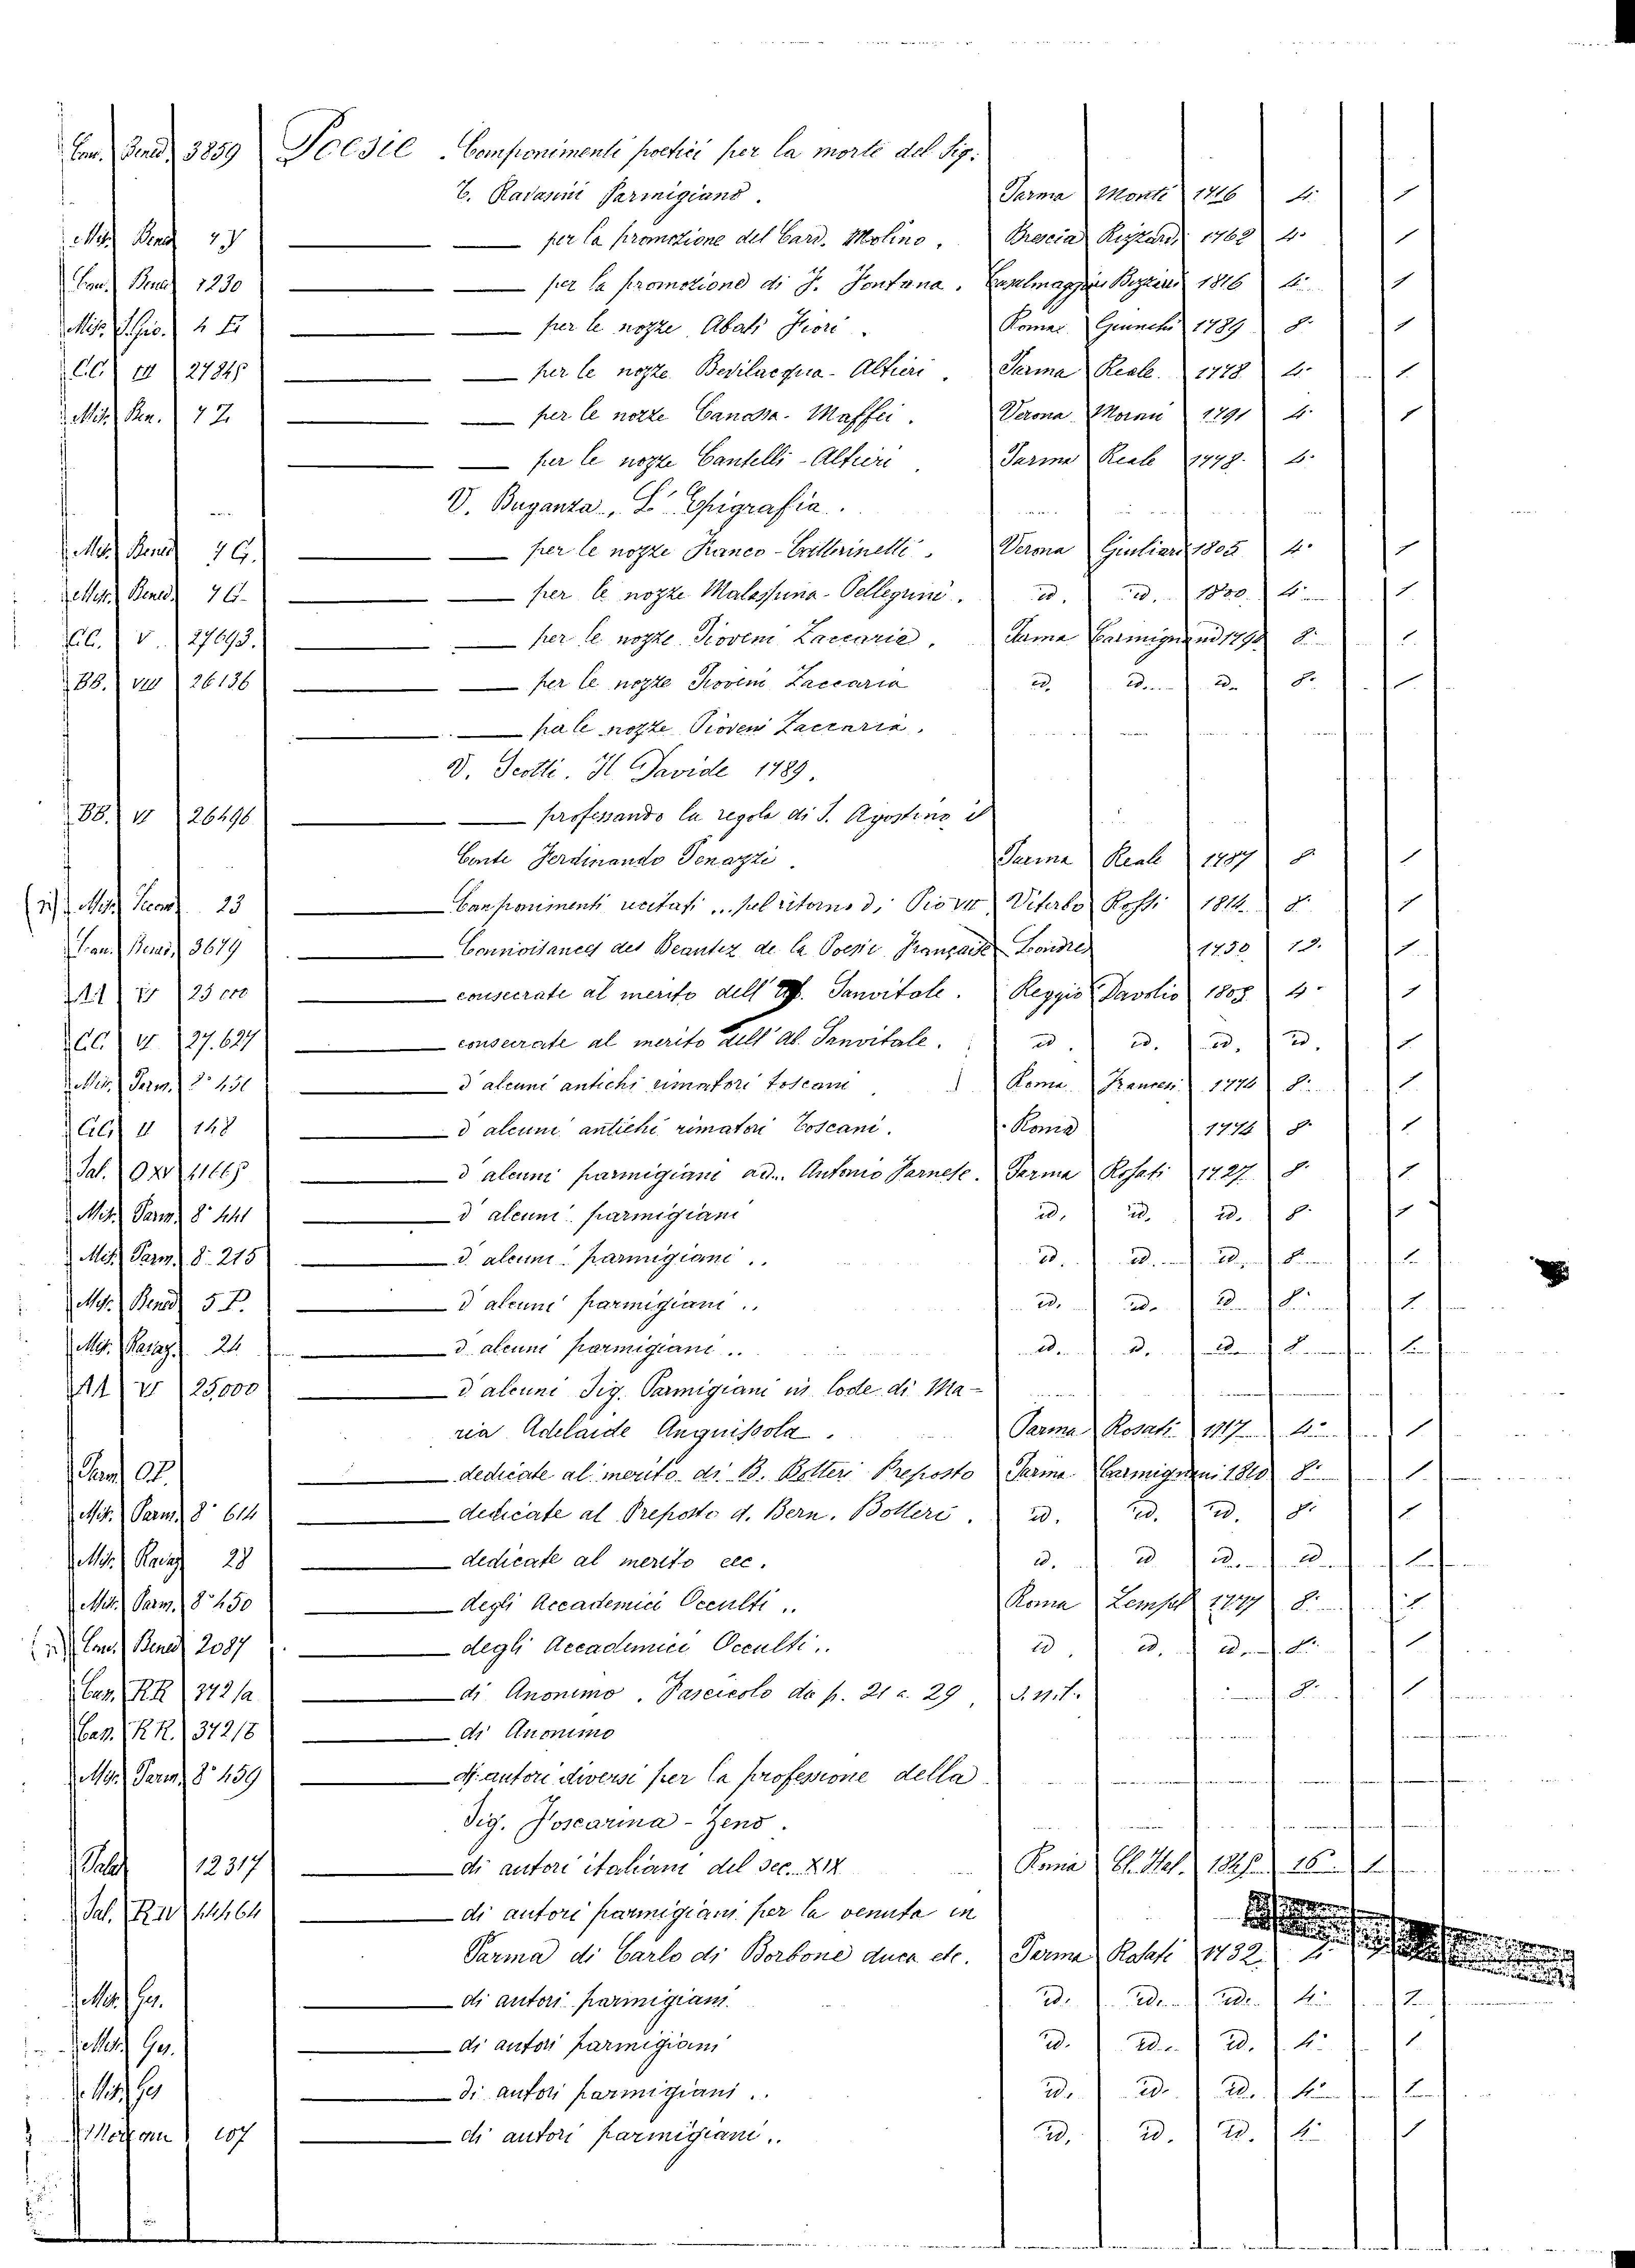 Bened. 3859 Poesie. Componimenti poetici per la morte del Sig.
C. Ravasini Parmigiano. Parma Monti 1716 4. 1
Misc. Bened. per la promozione del Card. Molino. Brescia Rizzardi 1762 4. 1
Bened. 1230 per la promozione di F. Fontana. Casalmaggiore Bizzarri 1816 4. 1
Misc. per le nozze Abati Fiori. Roma Giunchi 1789 8. 1
CC. per le nozze Bevilacqua-Altieri. Parma Reale 1778 4. 1
Misc. Ben. per le nozze Canossa-Maffei. Verona Moroni 1791 4. 1
per le nozze Cantelli-Altieri. Parma Reale 1778. 4.
V. Buganza, L'Epigrafia.
Misc. Bened. per le nozze Franco- Verona Giuliari 1805 4. 1
Misc. Bened. per le nozze Malaspina-Pellegrini. id. id. 1800 4. 1
CC. V. 27693. per le nozze Pioveni Zaccaria. Parma Carmignani 1790 8. 1
BB. VIII 26136 per le nozze Pioveni Zaccaria id. id. id. 8. 1
per le nozze Pioveni Zaccaria.
V. Scotti. Il Davide 1789.
BB. VI 26496 professando la regola di S. Agostino il
Conte Ferdinando Tenazzi. Parma Reale 1787 8. 1
Misc. 23 Componimenti recitati ... pel ritorno di Pio VII Viterbo 1814. 8. 1
Bened. 3679 Connoisances des Beautez de la Poesie Française Londres 1750 12. 1
AA consecrate al merito dell' Sanvitale. Reggio Davolio 1808 4. 1
CC. VI 27.627 consecrate al merito dell' ab. Sanvitale. id. id. id. id. 1
Misc. Parm. 8° 451 d'alcuni antichi rimatori toscani Roma 1774 8. 1
CC. II 148 d'alcuni antichi rimatori Toscani. Roma 1774 8. 1
Pal. d'alcuni parmigiani ad... Antonio Farnese. Parma Rosati 1727 8. 1
Misc. Parm. 8° 441 d'alcuni parmigiani id. id. id. 8. 1
Misc. Parm. 8. 215 d'alcuni parmigiani.. id. id. id. 8. 1
Misc. Bened. d'alcuni parmigiani.. id. id. id. 8. 1
Misc. 24 d'alcuni parmigiani.. id. id. id. 8. 1
AA VI 25,000 d'alcuni Sig. Parmigiani in lode di Ma-
ria Adelaide Anguissola. Parma Rosati 1717 4. 1
dedicate al merito di B. Botteri Preposto Parma Carmignani 1810 8. 1
Misc. Parm. 8° 614 dedicate al Preposto d. Bern. Botteri. id. id. id. 8. 1
Misc. 28 dedicate al merito ecc. id. id. id. id. 1
Misc. Parm. 8° 450 degli Accademici Occulti.. Roma 1777 8. 1
Bened. 2087 degli Accademici Occulti.. id. id. id. 8. 1
RR 3721a di Anonimo. Fascicolo da p. 21 a 29. S.n.t. 8. 1
RR. 3721b di Anonimo
Misc. Parm. 8° 459 di autori diversi per la professione della
Sig. Foscarina-Zeno.
Palat. 12317 di autori italiani del sec. XIX Roma 16 1
Pal. di autori parmigiani per la venuta in
Parma di Carlo di Borbone duca etc. Parma Rosati 1732. 4.
Misc. Ges. di autori parmigiani. id. id. id. 4. 1
Misc. Ges. di autori parmigiani id. id. id. 4. 1
Misc. Ges di autori parmigiani.. id. id. id. 4. 1
107 di autori parmigiani.. id. id. id. 4. 1